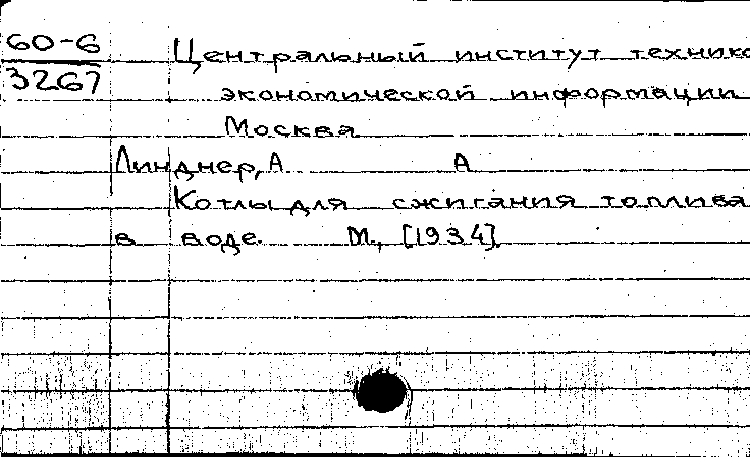 60-6
3267
Центральный институт технико
экономической информации
Москва
Линднер, А А
Котлы для сжигания топлива
в воде. М., [1934].